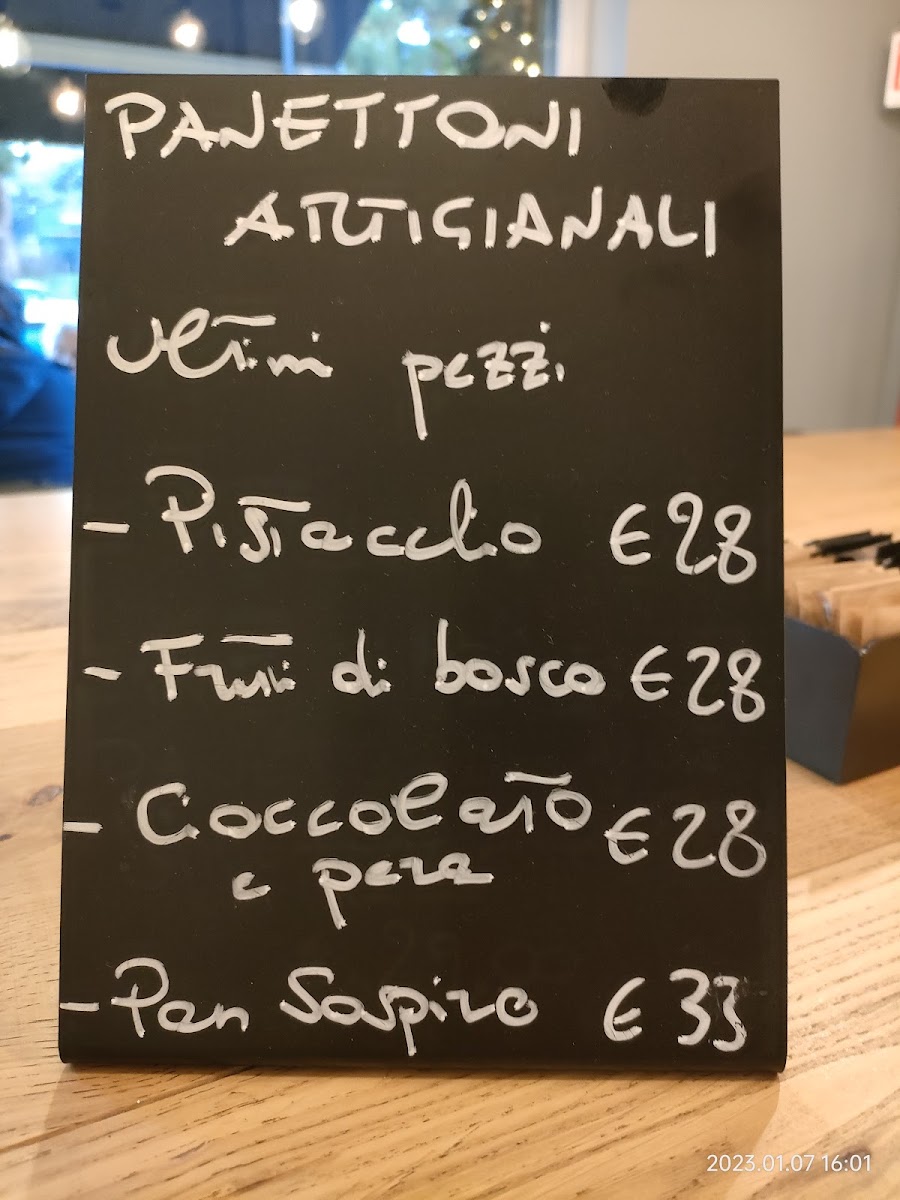 PANETTONI
ARTIGIANALI
Ultimi pezzi
- Pistacchio €28
- Frutti di bosco €28
- Coccolato €28
e pera
- Pan Sospiro €33
2023.01.07 16:01